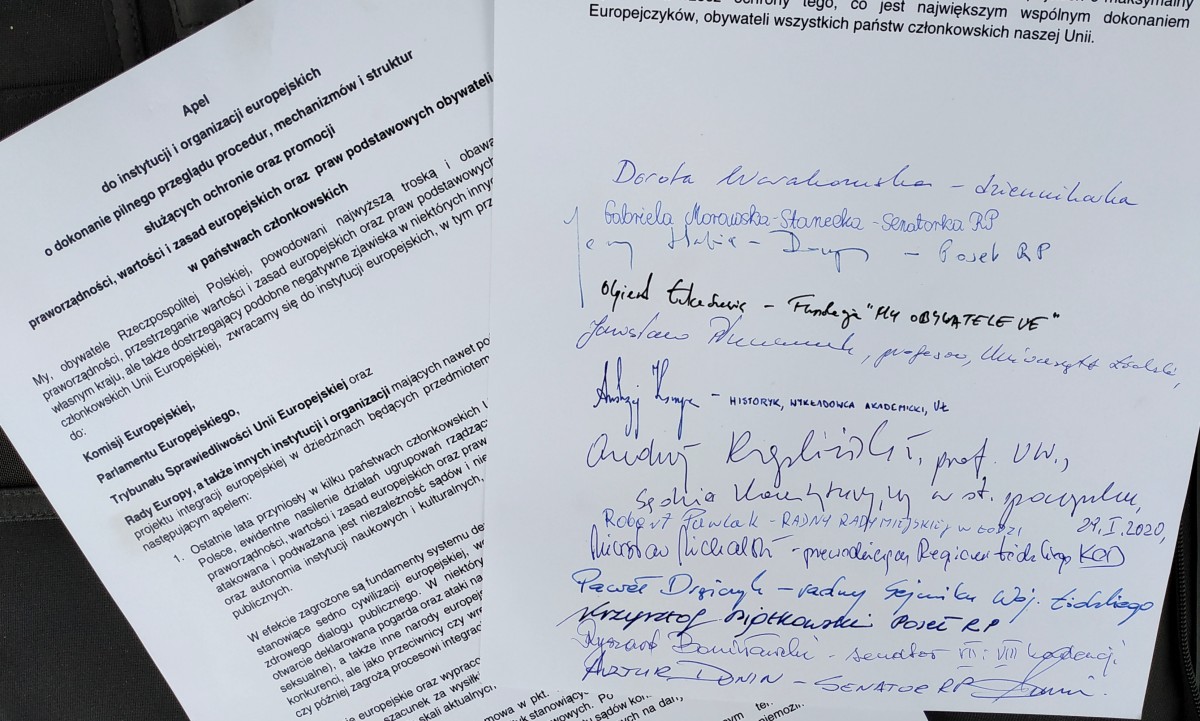 Apel
do instytucji i organizacji europejskich
o dokonanie pilnego przeglądu procedur, mechanizmów i struktur
służących ochronie oraz promocji
praworządności, wartości i zasad europejskich oraz praw podstawowych obywateli
w państwach członkowskich
My, obywatele Rzeczpospolitej Polskiej, powodowani najwyższą troską i obawą
praworządności, przestrzeganie wartości i zasad europejskich oraz praw podstawowych
własnym kraju, ale także dostrzegający podobne negatywne zjawiska w niektórych innych
członkowskich Unii Europejskiej, zwracamy się do instytucji europejskich, w tym prze
do:
Komisji Europejskiej,
Parlamentu Europejskiego,
Trybunału Sprawiedliwości Unii Europejskiej oraz
Rady Europy, a także innych instytucji i organizacji mających nawet po
projektu integracji europejskiej w dziedzinach będących przedmiotem
następującym apelem:
1. Ostatnie lata przyniosły w kilku państwach członkowskich
Polsce, ewidentne nasilenie działań ugrupowań rządząc
praworządności, wartości i zasad europejskich oraz praw
atakowana i podważana jest niezależność sądów i nie
oraz autonomia instytucji naukowych i kulturalnych,
publicznych.
W efekcie zagrożone są fundamenty systemu de
stanowiące sedno cywilizacji europejskiej, w
zdrowego dialogu publicznego. W niektó
otwarcie deklarowana pogarda oraz ataki na
seksualne), a także inne narody europej
konkurenci, ale jako przeciwnicy czy wr
czy później zagrożą procesowi integrac
europejskie oraz wypraco
szacunek za wysiłk
skali aktualnych
mowa w pkt.
stanowiący
sądów kon
na dan
ochrony tego, co jest największym wspólnym dokonaniem
Europejczyków, obywateli wszystkich państw członkowskich naszej Unii.
Dorota Warakomska – dziennikarka
Gabriela Morawska-Stanecka - Senatorka RP
– Poseł RP
– Fundacja "MY OBYWATELE UE"
Jarosław Płuciennik, profesor, Uniwersytet Łódzki,
Andrzej – HISTORYK, WYKŁADOWCA AKADEMICKI, UŁ
Andrzej Rzepliński, prof. UW.,
sędzia w st. spoczynku,
29.I.2020,
Robert Pawlak - RADNY RADY MIEJSKIEJ w ŁODZI
Mirosław Michalski - przewodniczący Regionu Łódzkiego KOD
Paweł – radny Sejmiku Woj. Łódzkiego
Krzysztof Piątkowski Poseł RP
Ryszard Bonisławski – senator VII i VIII kadencji
ARTUR DUNIN – SENATOR RP